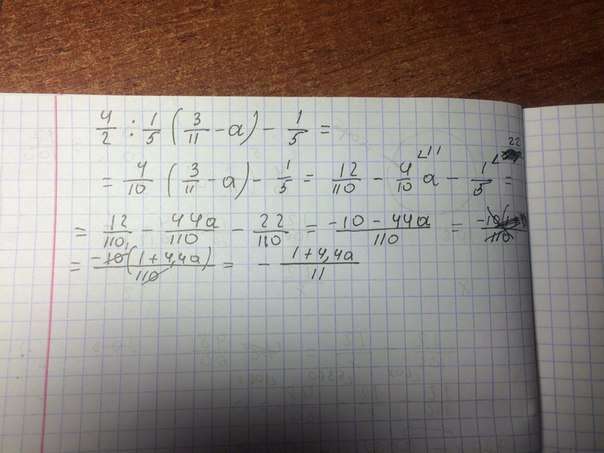 4/2 : 1/5 (3/11 - a) - 1/5 =
= 4/10 (3/11 - a) - 1/5 = 12/110 - 4/10 a - 1/5 =
= 12/110 - 44a/110 - 22/110 = -10 - 44a/110 =
= -10(1 + 4,4a)/110 = - 1 + 4,4a/11